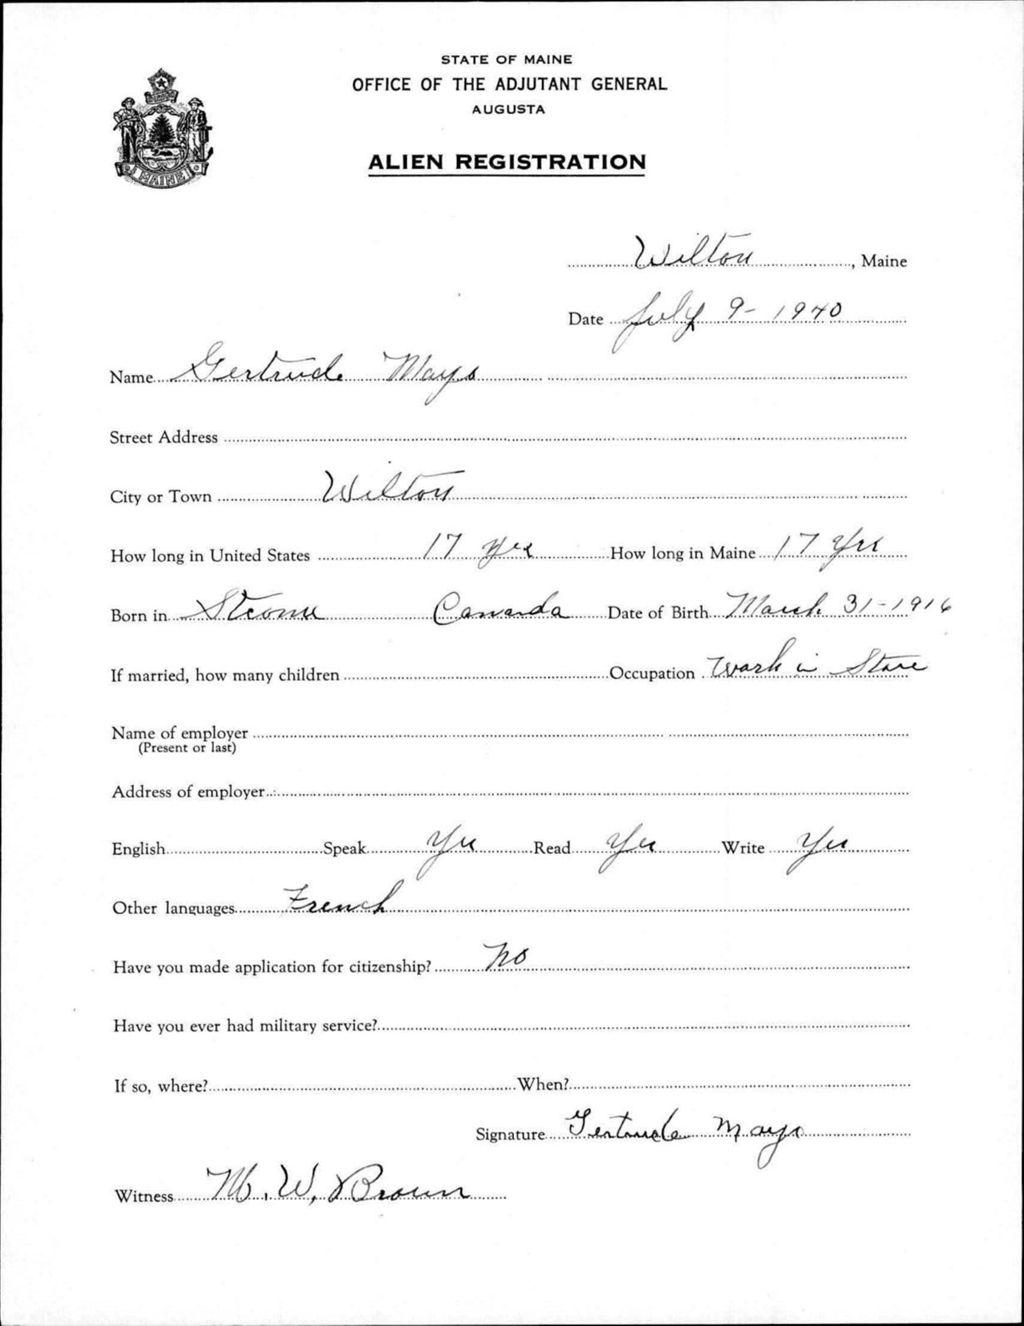 STATE OF MAINE
OFFICE OF THE ADJUTANT GENERAL
AUGUSTA
ALIEN REGISTRATION
MAINE
Wilton, Maine
Date July 9-1940
Name Gertrude Mayo
Street Address
City or Town Wilton
How long in United States 17 Yrs How long in Maine 17 Yrs
Born in Canada Date of Birth March 31-1916
If married, how many children Occupation Work in Store
Name of employer
(Present or last)
Address of employer
English Speak Yes Read Yes Write Yes
Other languages French
Have you made application for citizenship? No
Have you ever had military service?
If so, where? When?
Signature Gertrude Mayo
Witness M. W. Brown